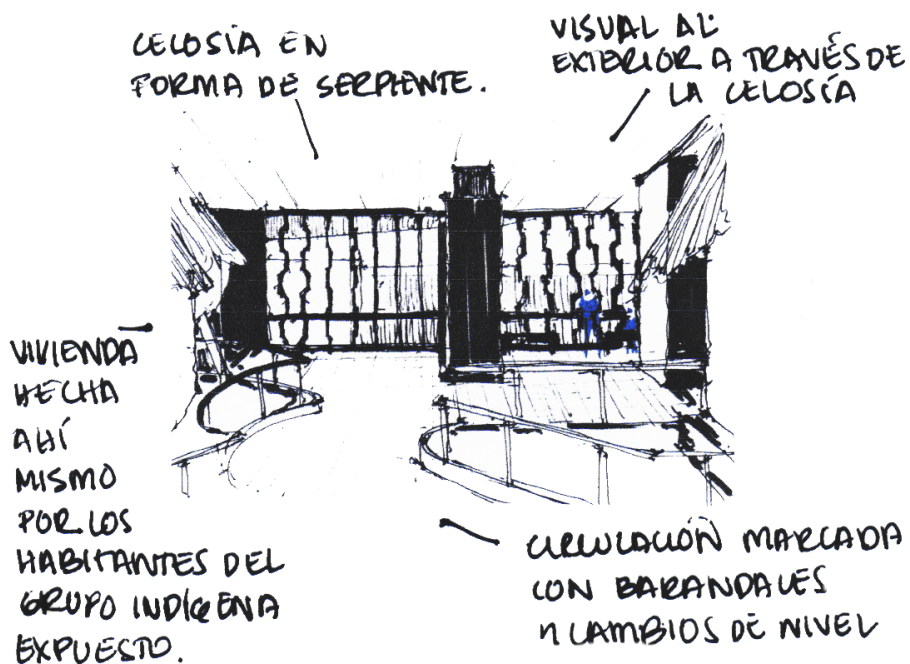 CELOSÍA EN
FORMA DE SERPIENTE.
VISUAL AL
EXTERIOR A TRAVÉS DE
LA CELOSÍA
VIVIENDA
HECHA
AHÍ
MISMO
POR LOS
HABITANTES DEL
GRUPO INDÍGENA
EXPUESTO.
CIRCULACIÓN MARCADA
CON BARANDALES
Y CAMBIOS DE NIVEL